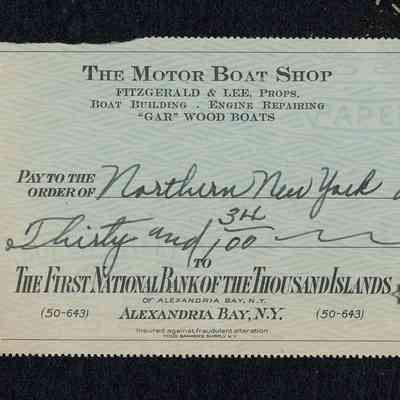 THE MOTOR BOAT SHOP
FITZGERALD & LEE, PROPS.
BOAT BUILDING . ENGINE REPAIRING
"GAR" WOOD BOATS
PAY TO THE
ORDER OF Northern New York
Thirty and 34/100
TO
THE FIRST NATIONAL BANK OF THE THOUSAND ISLANDS
OF ALEXANDRIA BAY, N.Y.
(50-643) ALEXANDRIA BAY, N.Y. (50-643)
Insured against fraudulent alteration
TODD BANKERS SUPPLY N.Y.